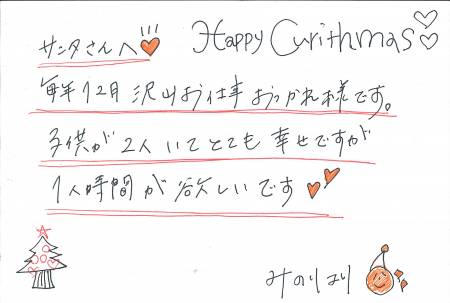 サンタさんへ!!! Happy Curithmas
毎年12月 沢山お仕事 おつかれ様です。
子供が2人いてとても幸せですが
1人時間が欲しいです
みのりより